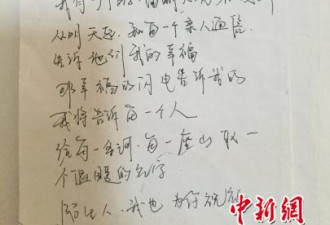 从明天起，和每一个亲人通信
告诉他们我的幸福
那幸福的闪电告诉我的
我将告诉每一个人
给每一条河，每一座山取一
个温暖的名字
陌生人，我也为你祝福
中新網